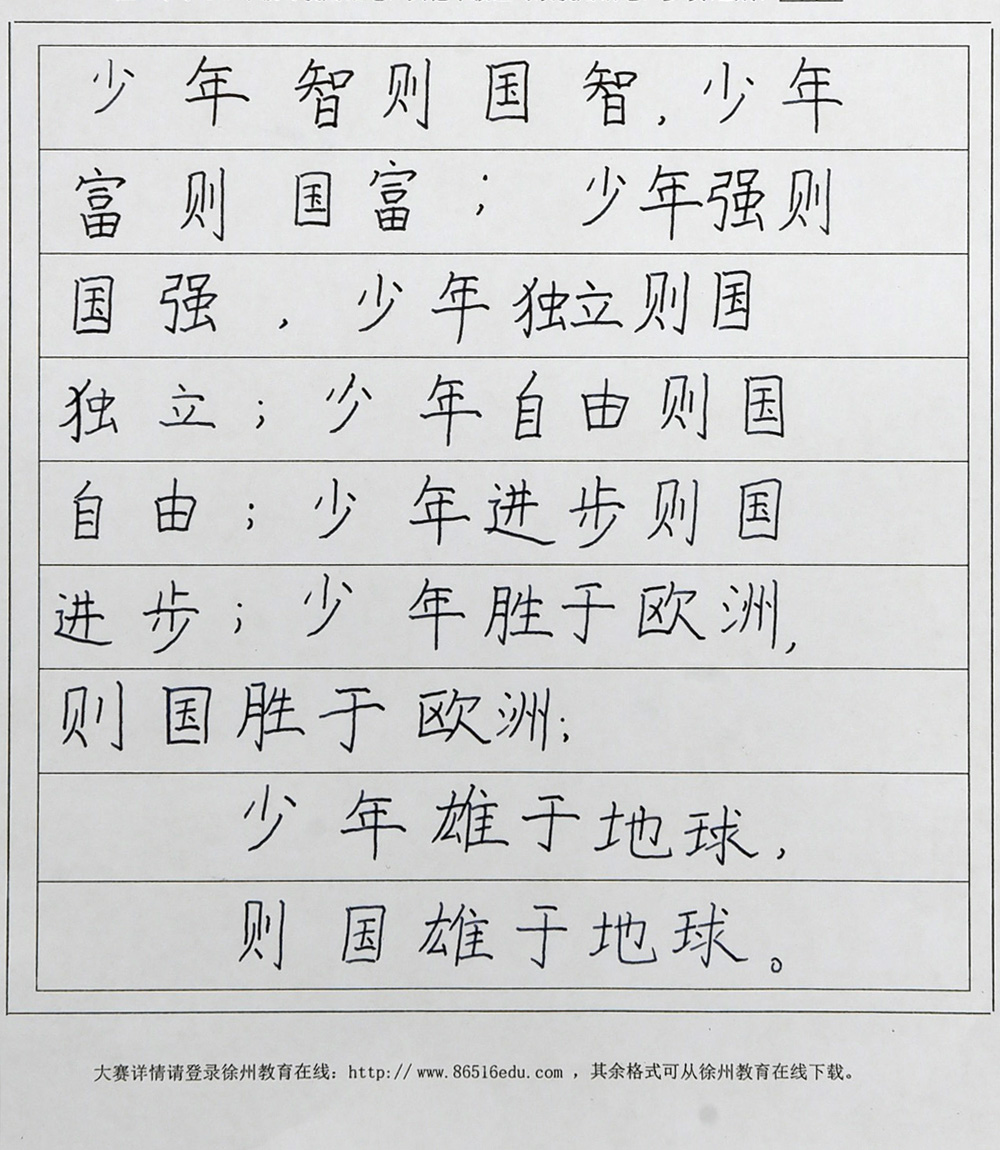 少年智则国智,少年
富则国富;少年强则
国强,少年独立则国
独立;少年自由则国
自由;少年进步则国
进步;少年胜于欧洲,
则国胜于欧洲;
少年雄于地球,
则国雄于地球。
大赛详情请登录徐州教育在线：http://www.86516edu.com ，其余格式可从徐州教育在线下载。